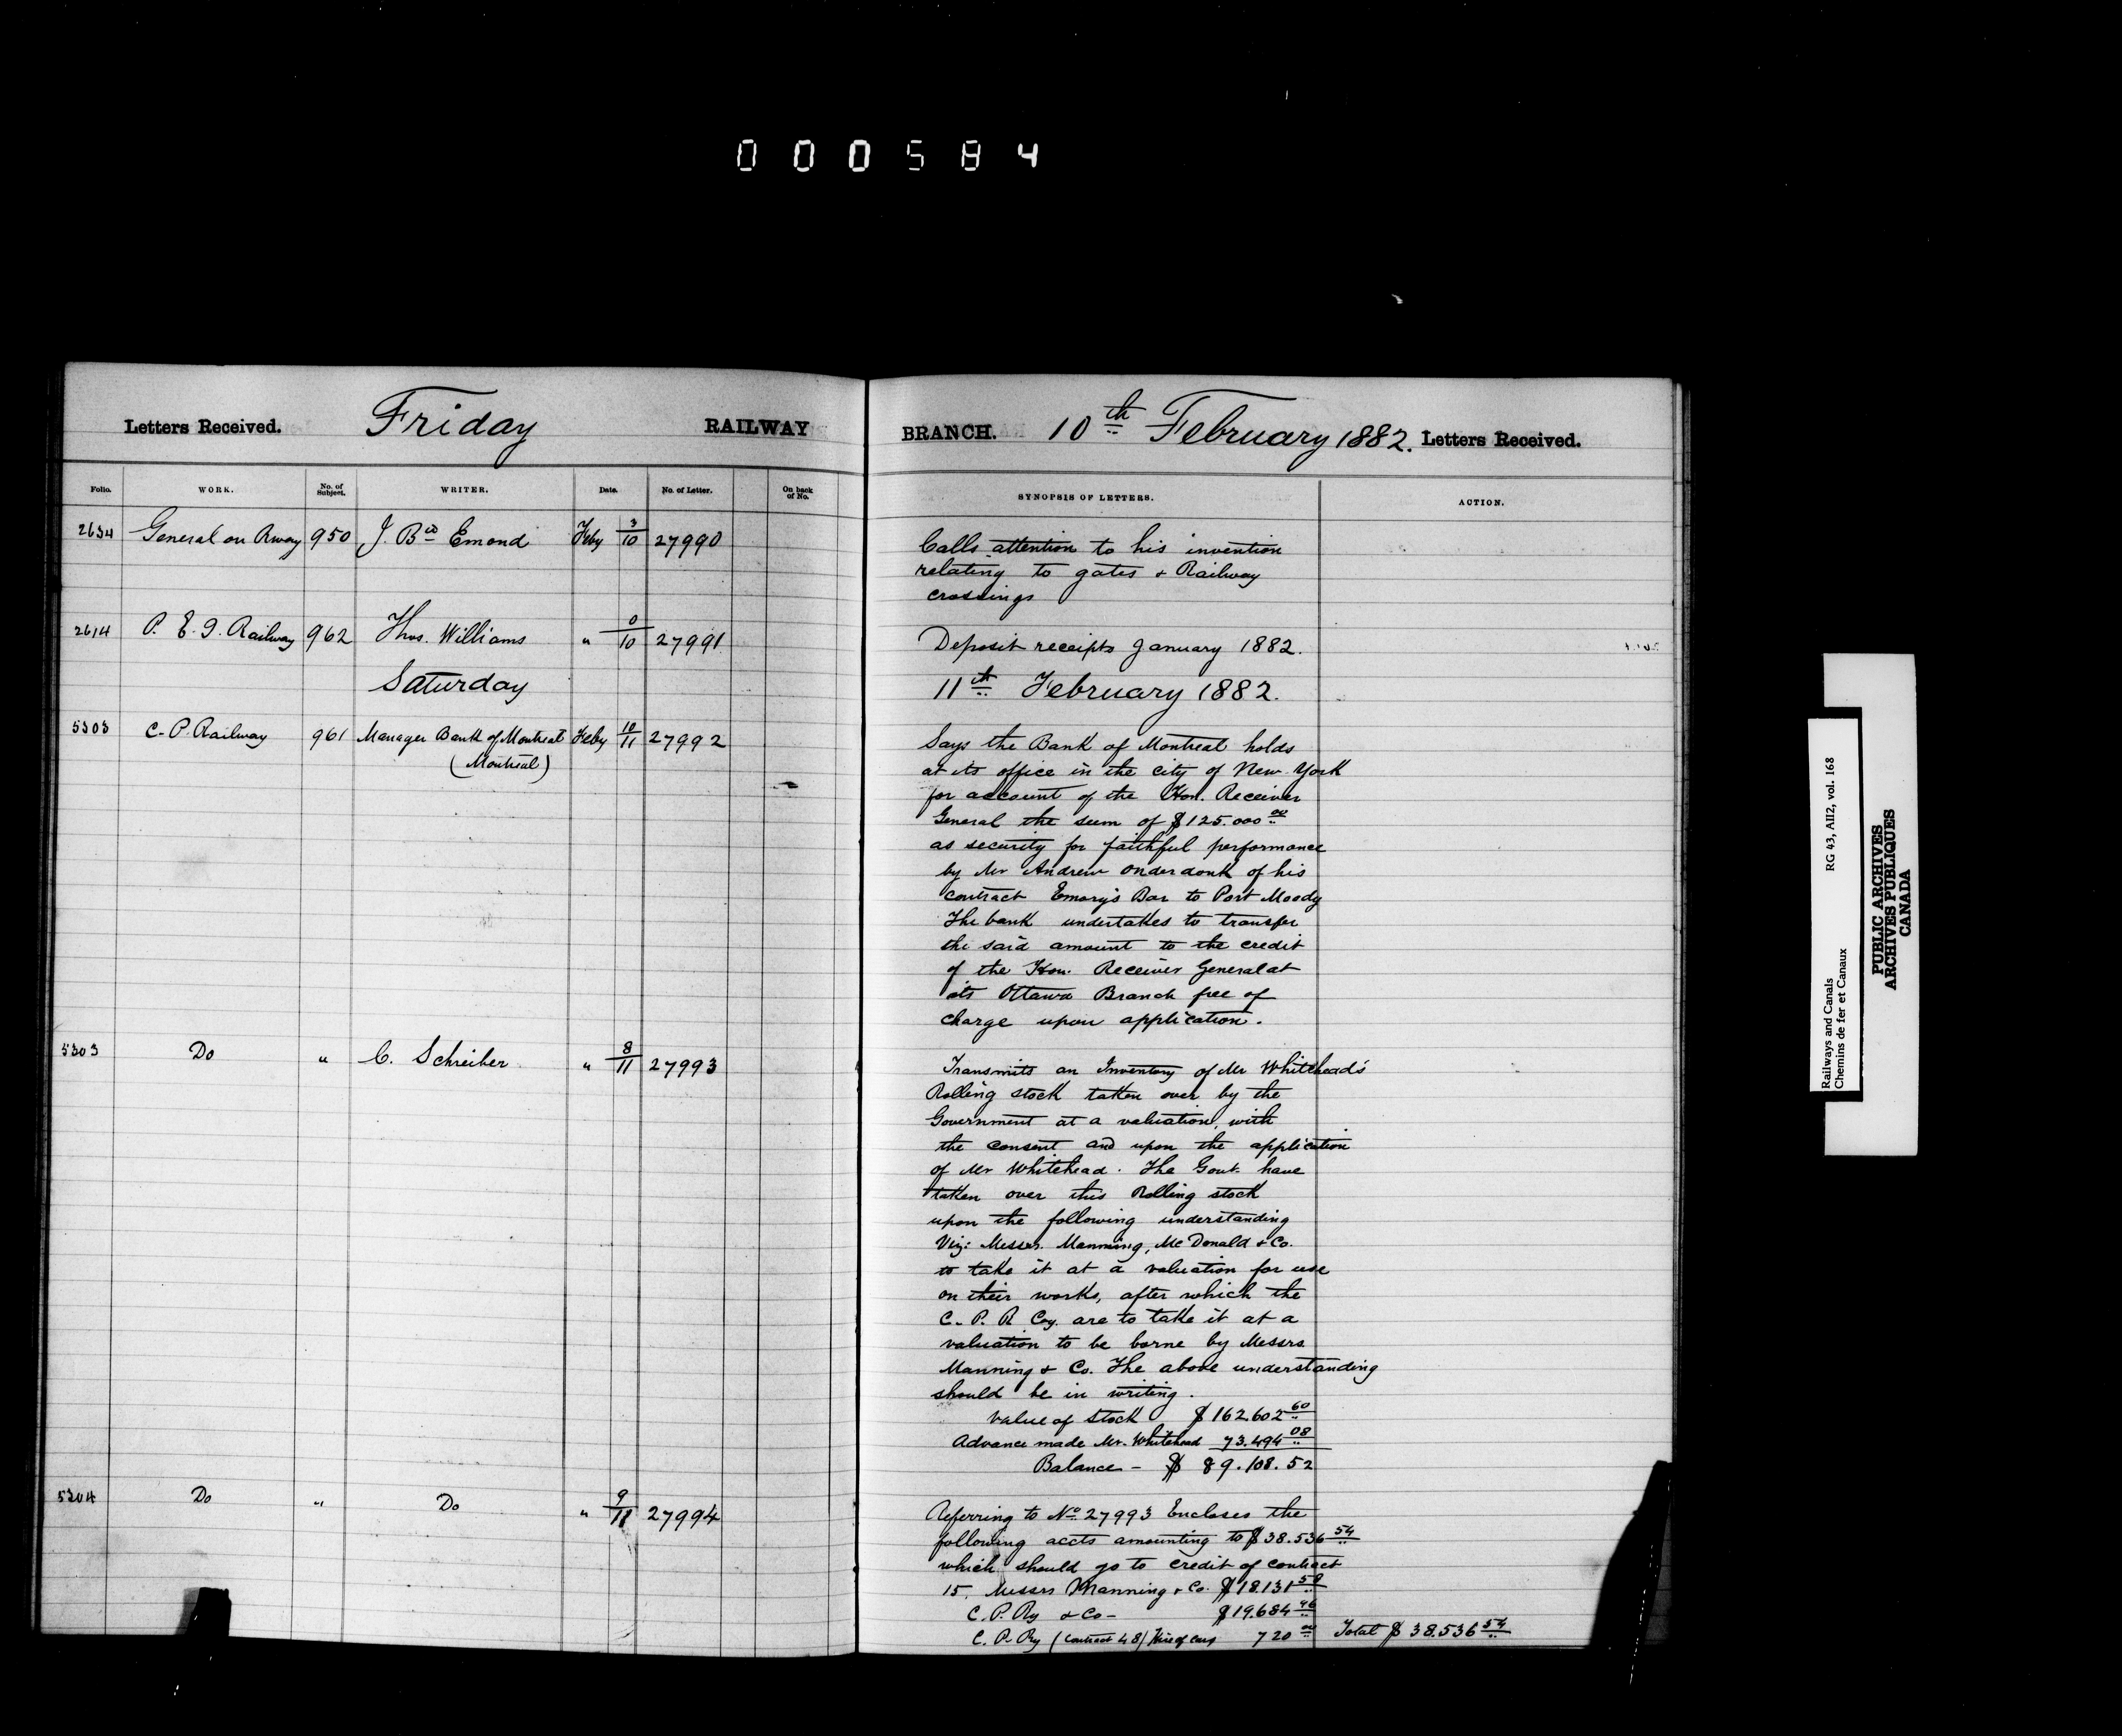 000584
Letters Received. Friday RAILWAY
Folio. WORK. No. of Subject. WRITER. Date. No. of Letter. On back of No.
2634 General on Rway 950 J. Bte Emond Feby 3/10 27990
2614 P. E. I. Railway 962 Thos. Williams " 0/10 27991
Saturday
5303 C. P. Railway 961 Manager Bank of Montreal Feby 10/11 27992
(Montreal)
5303 Do " C. Schreiber " 8/11 27993
5304 Do " Do " 9/11 27994
BRANCH. 10th February 1882. Letters Received.
SYNOPSIS OF LETTERS. ACTION.
Calls attention to his invention
relating to gates & Railway
crossings
Deposit receipts January 1882.
11th February 1882.
Says the Bank of Montreal holds
at its office in the city of New York
for account of the Hon. Receiver
General the sum of $125.000 00
as security for faithful performance
by Mr Andrew Onderdonk of his
contract Emory's Bar to Port Moody
The bank undertakes to transfer
the said amount to the credit
of the Hon. Receiver General at
its Ottawa Branch free of
charge upon application.
Transmits an Inventory of Mr Whitehead's
Rolling stock taken over by the
Government at a valuation, with
the consent and upon the application
of Mr Whitehead. The Govt. have
taken over this Rolling stock
upon the following understanding
Viz: Messrs. Manning, McDonald & Co.
to take it at a valuation for use
on their works, after which the
C. P. R Coy. are to take it at a
valuation to be borne by Messrs
Manning & Co. The above understanding
should be in writing.
Value of Stock $ 162.602 60
Advance made Mr. Whitehead 73.494 08
Balance - $ 89.108.52
Referring to No 27993 Encloses the
following accts amounting to $38.536 54
which should go to credit of contract
15. Messrs Manning & Co. $18.131 58
C. P. Ry & Co - $19.684 96
C. P. Ry (Contract 48) Hire of cars 720 00 Total $ 38.536 54
Railways and Canals RG 43, AII2, vol. 168
Chemins de fer et Canaux
PUBLIC ARCHIVES
ARCHIVES PUBLIQUES
CANADA